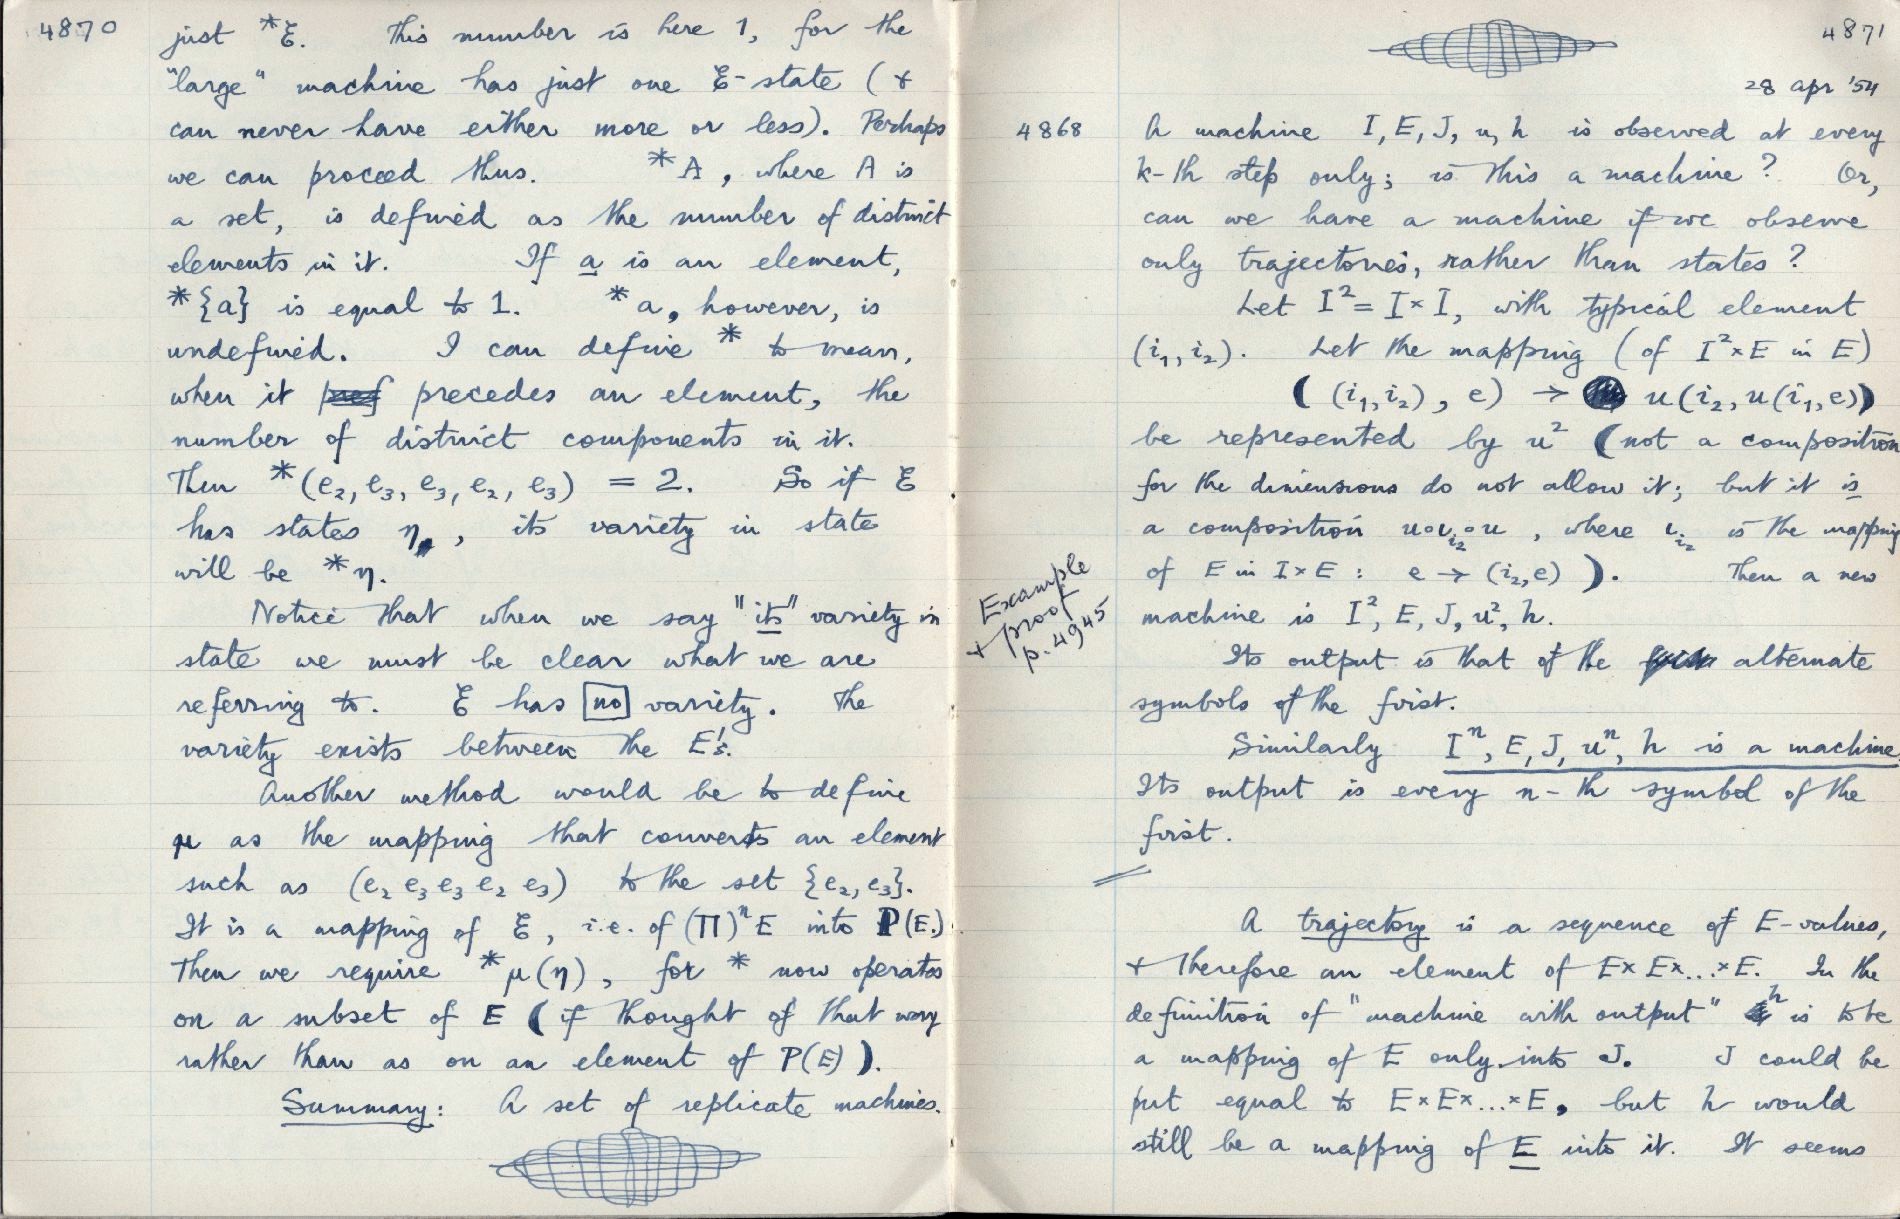 4870
just *ℰ. This number is here 1, for the
"large" machine has just one ℰ-state (&
can never have either more or less). Perhaps
we can proceed thus. *A, where A is
a set, is defined as the number of distinct
elements in it. If a is an element,
*{a} is equal to 1. *a, however, is
undefined. I can define * to mean,
when it precedes an element, the
number of distinct components in it.
Then *(e₂, e₃, e₃, e₂, e₃) = 2. So if ℰ
has states η, its variety in state
will be *η.
Notice that when we say "its" variety in
state we must be clear what we are
referring to. ℰ has no variety. The
variety exists between the E's.
Another method would be to define
μ as the mapping that converts an element
such as (e₂ e₃ e₃ e₂ e₃) to the set {e₂, e₃}.
It is a mapping of ℰ, i.e. of (Π)ⁿE into P(E.)
Then we require *μ(η), for * now operates
on a subset of E (if thought of that way
rather than as on an element of P(E)).
Summary: A set of replicate machines.
4871
28 apr '54
4868
A machine I, E, J, u, h is observed at every
k-th step only; is this a machine? Or,
can we have a machine if we observe
only trajectories, rather than states?
Let I² = I×I, with typical element
(i₁, i₂). Let the mapping (of I²×E in E)
((i₁, i₂), e) → u(i₂, u(i₁, e))
be represented by u² (not a composition
for the dimensions do not allow it; but it is
a composition u∘ι_i₂∘u, where ι_i₂ is the mapping
of E in I×E: e → (i₂, e)). Then a new
machine is I², E, J, u², h.
Example
+ proof
p. 4945
Its output is that of the alternate
symbols of the first.
Similarly Iⁿ, E, J, uⁿ, h is a machine.
Its output is every n-th symbol of the
first.
A trajectory is a sequence of E-values,
& therefore an element of E×E×...×E. In the
definition of "machine with output" h is to be
a mapping of E only into J. J could be
put equal to E×E×...×E, but h would
still be a mapping of E into it. It seems